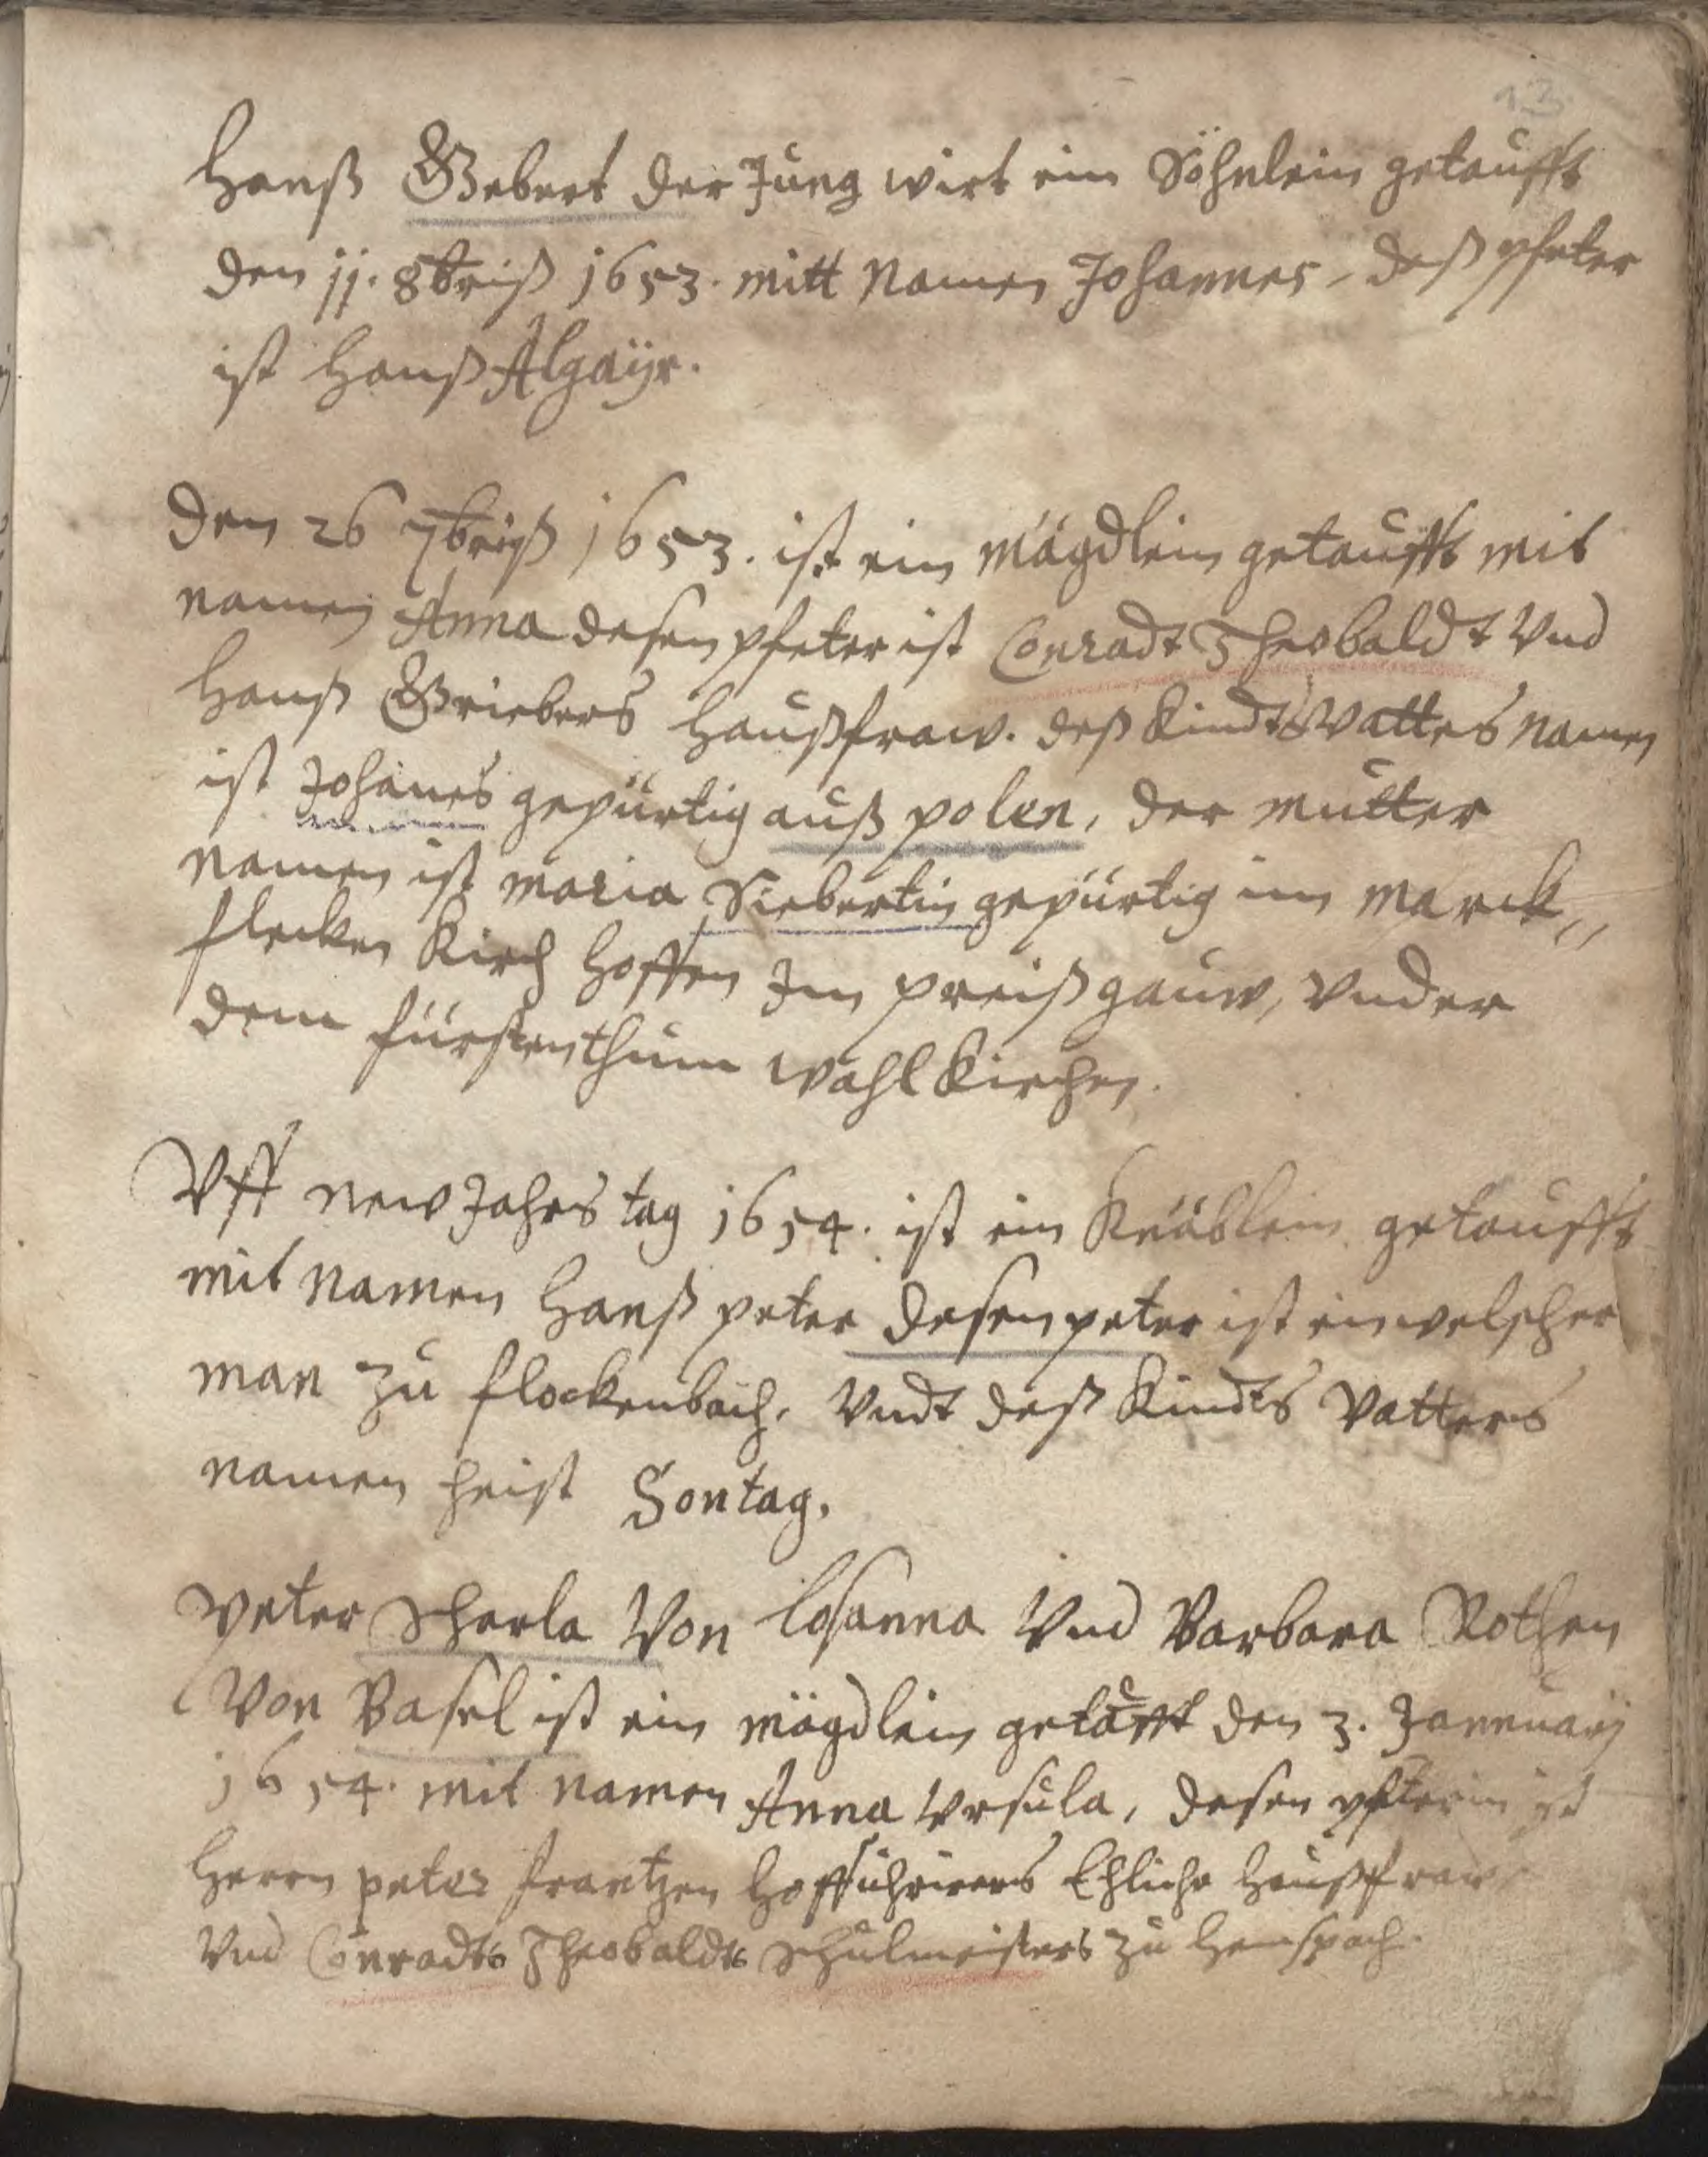 13
Hanß Gebert der Jung wirt ein Söhnlein getaufft
den 11. 8briß 1653. mitt Namen Johannes, deß pfeter
ist Hanß Algaÿr.
Den 26 7briß 1653. ist ein mägdlein getaufft mit
namen Anna desen pfeter ist Conradt Theobaldt Vnd
Hanß Griebers Haußfraw. deß Kindts Vatters Namen
ist Johanes gepürtig auß polen, der mutter
namen ist maria Siebertin gepürtig im Marck„
flecken Kirch Hoffen Im preißgauw, Vnder
dem fürstenthum wahlKirchen.
Vff new Jahrs tag 1654. ist ein Knäblein getaufft
mit Namen Hanß peter desen peter ist ein welscher
man zu flockenbach. Vndt deß Kindts Vatters
namen heist Sontag.
peter Scherla Von losanna Vnd Barbara Rothen
Von Basel ist ein mägdlein getaufft den 3. Jannuarÿ
1654. mit namen Anna Vrsula, desen pfterin ist
Herrn peter frantzen Hoffführers Ehliche Haußfraw
Vnd Conradts Theobaldts Schulmeisters zu Hemspach.